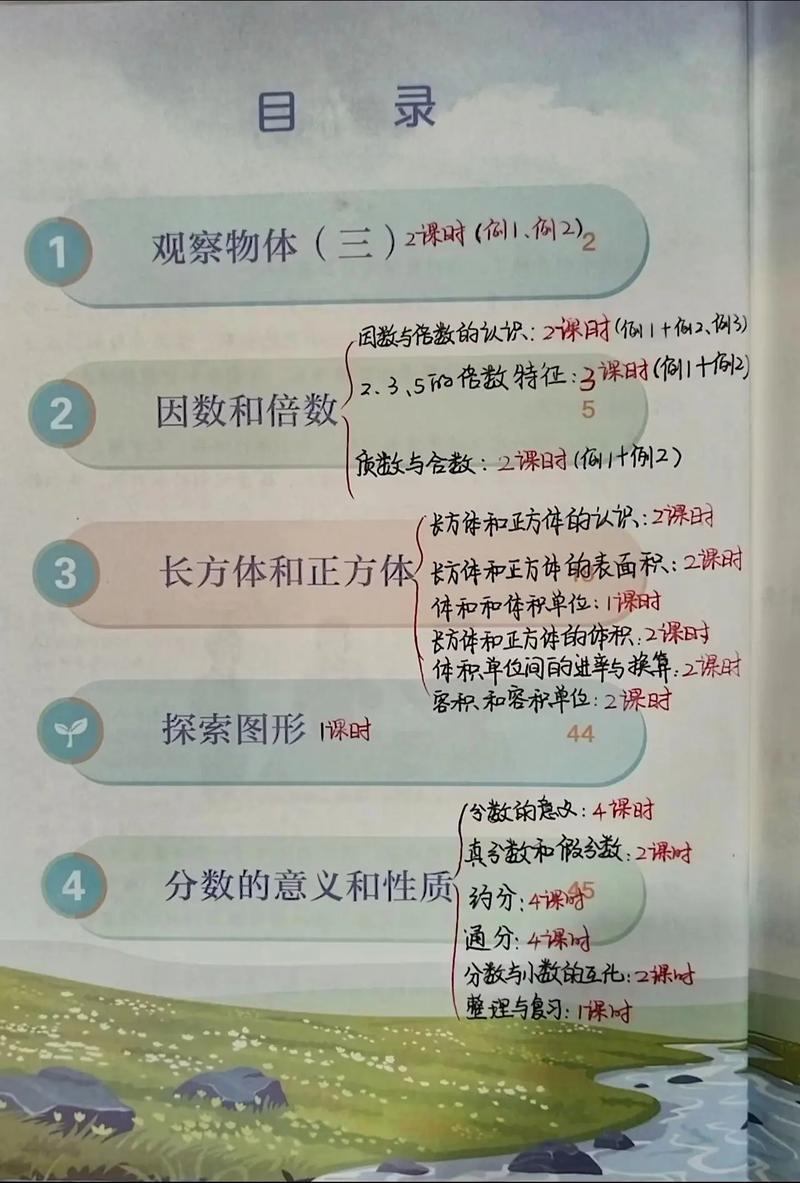 目 录
1 观察物体(三) 2课时(例1、例2) 2
因数与倍数的认识:2课时(例1+例2、例3)
2 因数和倍数
2、3、5的倍数特征:3课时(例1+例2)
5
质数与合数:2课时(例1+例2)
长方体和正方体的认识:2课时
3 长方体和正方体
长方体和正方体的表面积:2课时
体和和体积单位:1课时
长方体和正方体的体积:2课时
体积单位间的进率与换算:2课时
容积和容积单位:2课时
探索图形 1课时 44
分数的意义:4课时
真分数和假分数:2课时
4 分数的意义和性质 45
约分:4课时
通分:4课时
分数与小数的互化:2课时
整理与复习:1课时